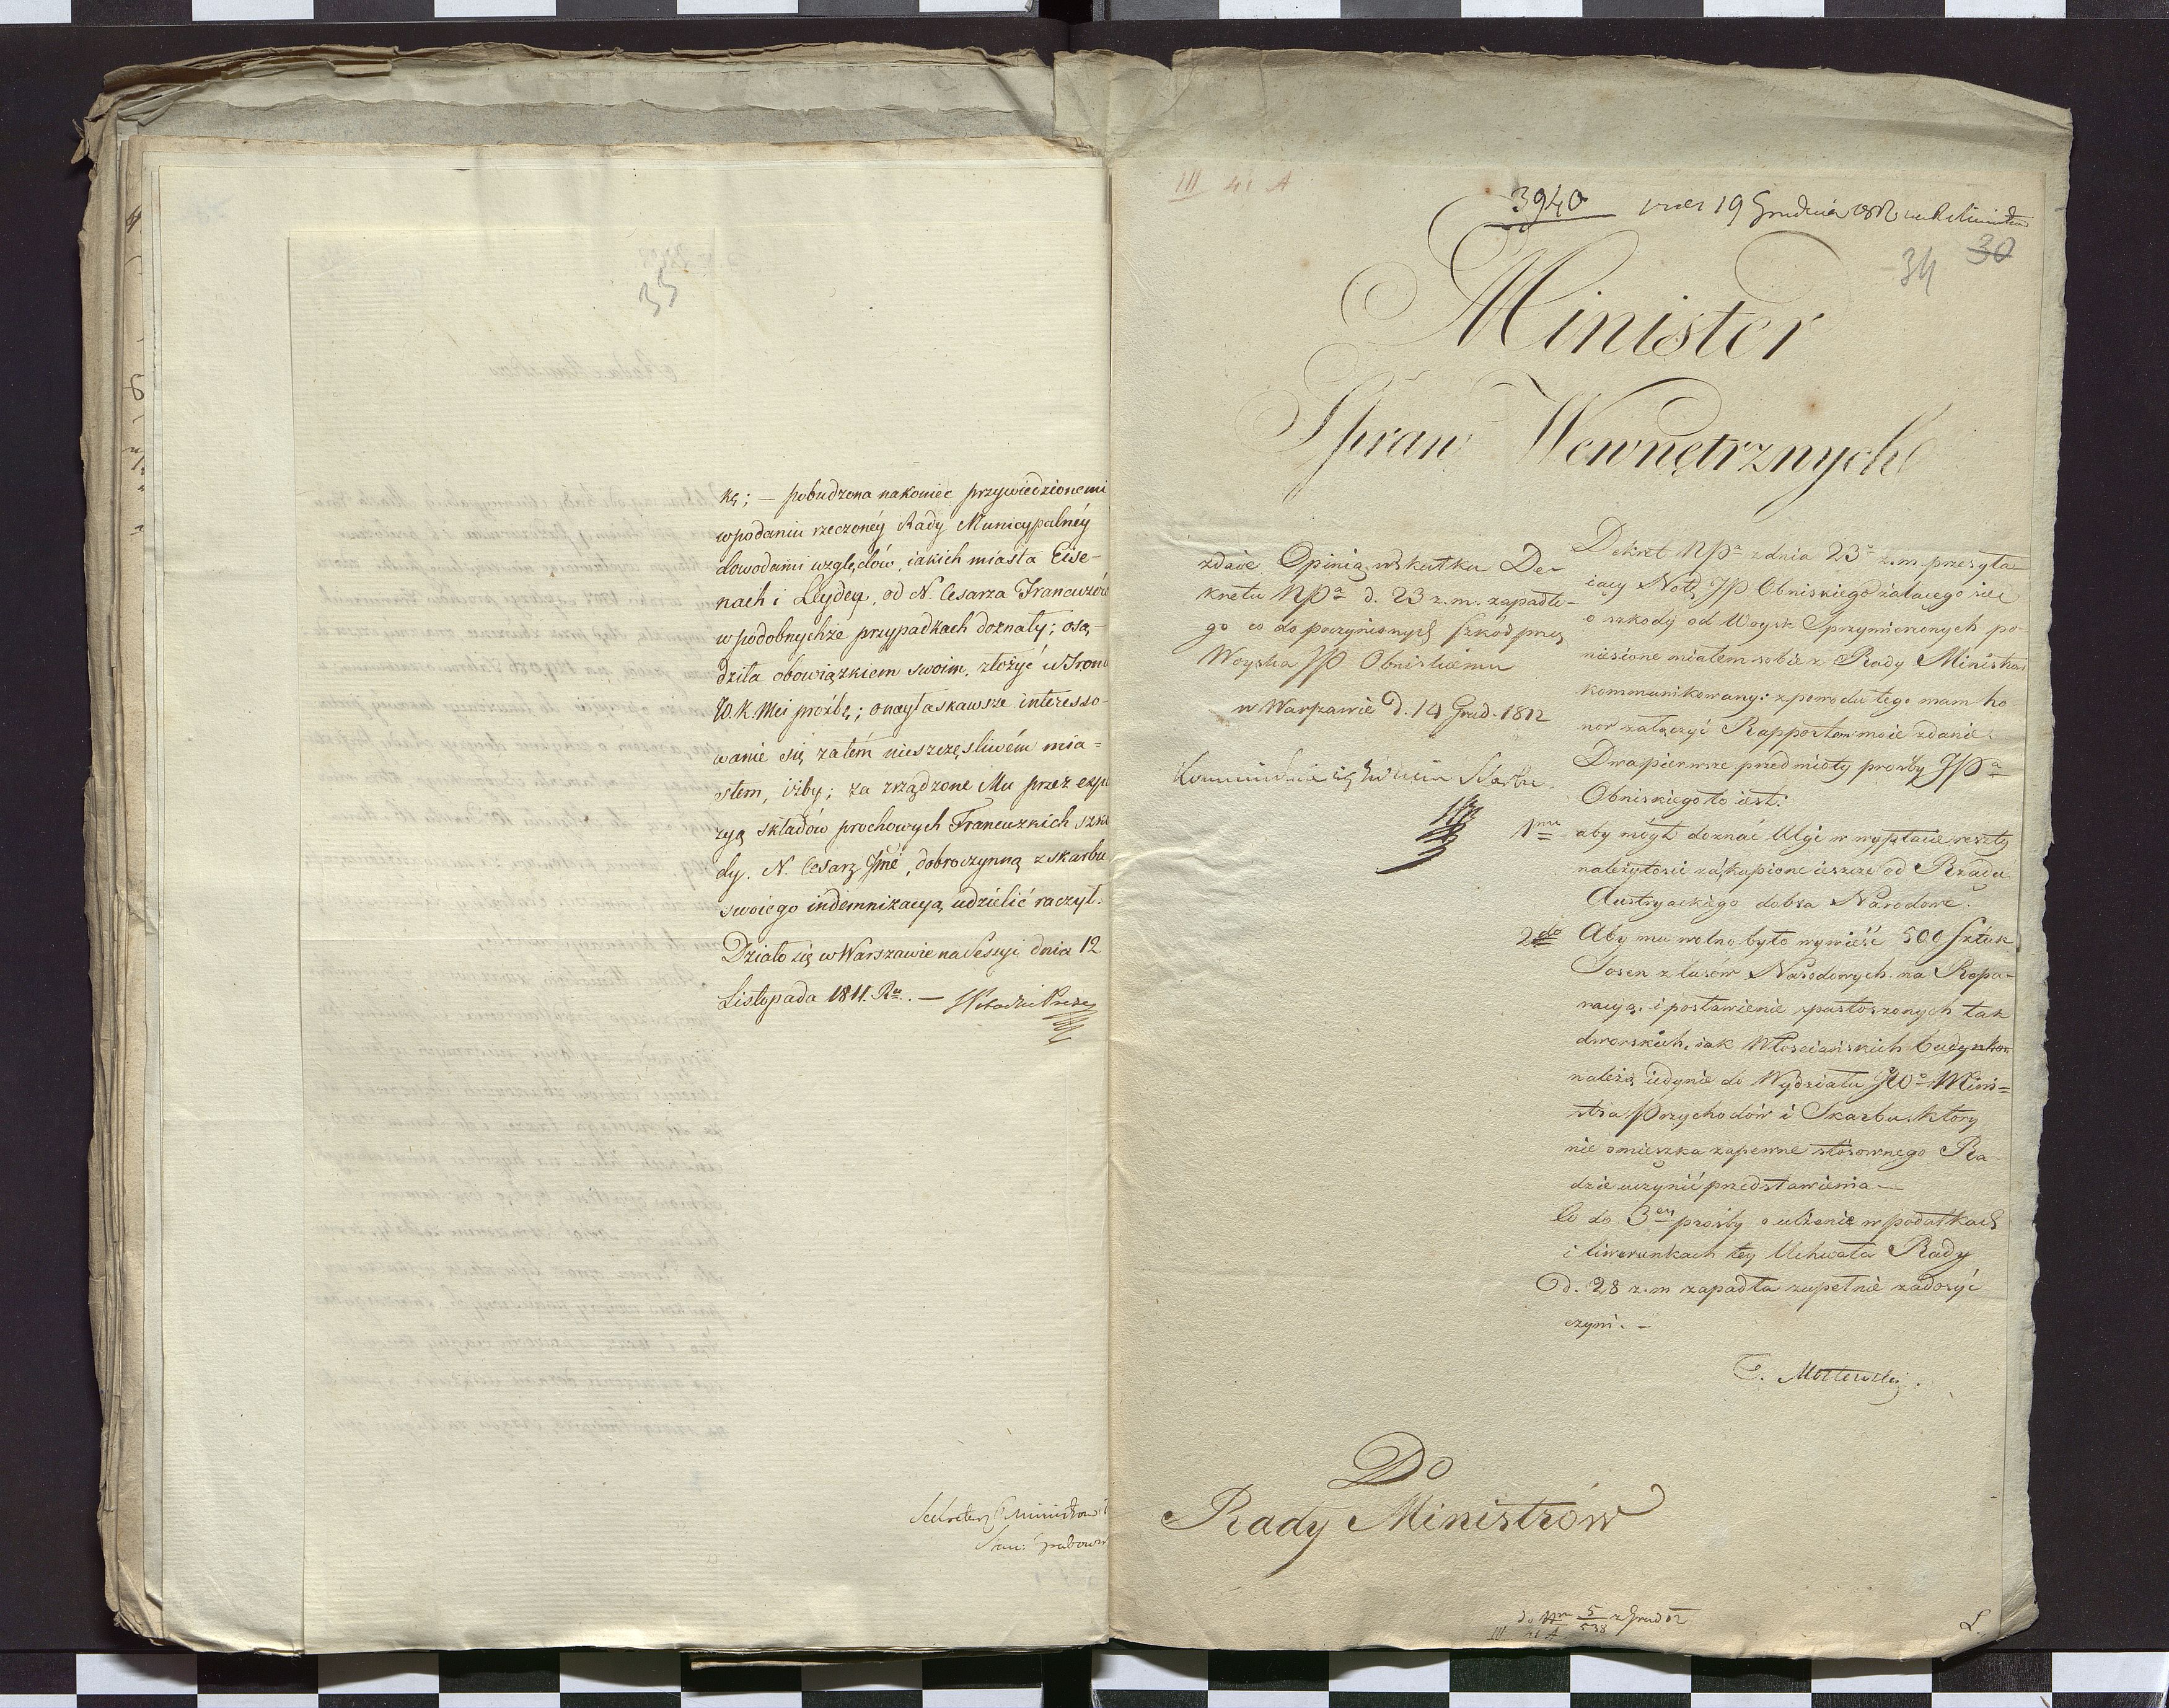 35
kę; — pobudzona nakoniec przywiedzionemi
w podaniu rzeczonéy Rady Municypalnéy
dowodami względów, iakich miasta Eise-
nach i Leyden, od N. Cesarza Francuzów
w podobnychże przypadkach doznały; osą-
dziła obowiązkiem swoim, złożyć u Tronu
W. K. Mci proźbę; o nayłaskawsze interesso-
wanie się zatém nieszczęsliwém mia-
stem, iżby; za zrządzone Mu przez expl
zyą składów prochowych Francuzkich szko
dy. N. Cesarz Jmć, dobroczynną z skarbu
swoiego indemnizacyą udzielić raczył.
Działo się w Warszawie na Sessyi dnia 12
Listopada 1811. Ru. —
Sekretarz Ministrow
Grabows
III 41 A
3940 19 Grudnia 1812
34 30
Minister
Spraw Wewnętrznych
zdaie Opinią w skutku De-
kretu NPa d. 23 z. m. zapadłe-
go co do poczynionych szkod przez
Woyska JP Obniskiemu
w Warszawie d. 14 Grud. 1812
Dekret NPa z dnia 23o z. m przesyła-
iący Notę JP Obniskiego żalącego sie
o szkody od Woysk Sprzymierzonych po-
niesione miałem sobie z Rady Ministrow
kommunikowany: z powodu tego mam ho-
nor załączyć Rapportem moie zdanie.
Dwa pierwsze przedmioty prośby JPa
Obniskiego to iest:
1mo aby mógł doznać Ulgi w wypłacie reszty
należytosci za kupione ieszcze od Rządu
Austryackiego dobra Narodowe.
2do Aby mu wolno było wywieść 500 Sztuk
Sosen z lasów Narodowych na Repa-
racyą i postawienie spustoszonych tak
dworskich, iak Włościańskich budynkow
należą iedynie do Wydziału JWo Mini-
stra Przychodów i Skarbu, ktory
nie omieszka zapewne stosownego Ra-
dzie uczynić przedstawienia —
Co do 3ey prośby o ulżenie w podatkach
i liwerunkach tey Uchwała Rady
d. 28 z. m zapadła zupełnie zadosyć
czyni. —
T. Mostowski.
Do
Rady Ministrów
do Nru 5/538 z Grud 12
III 41 A
L.